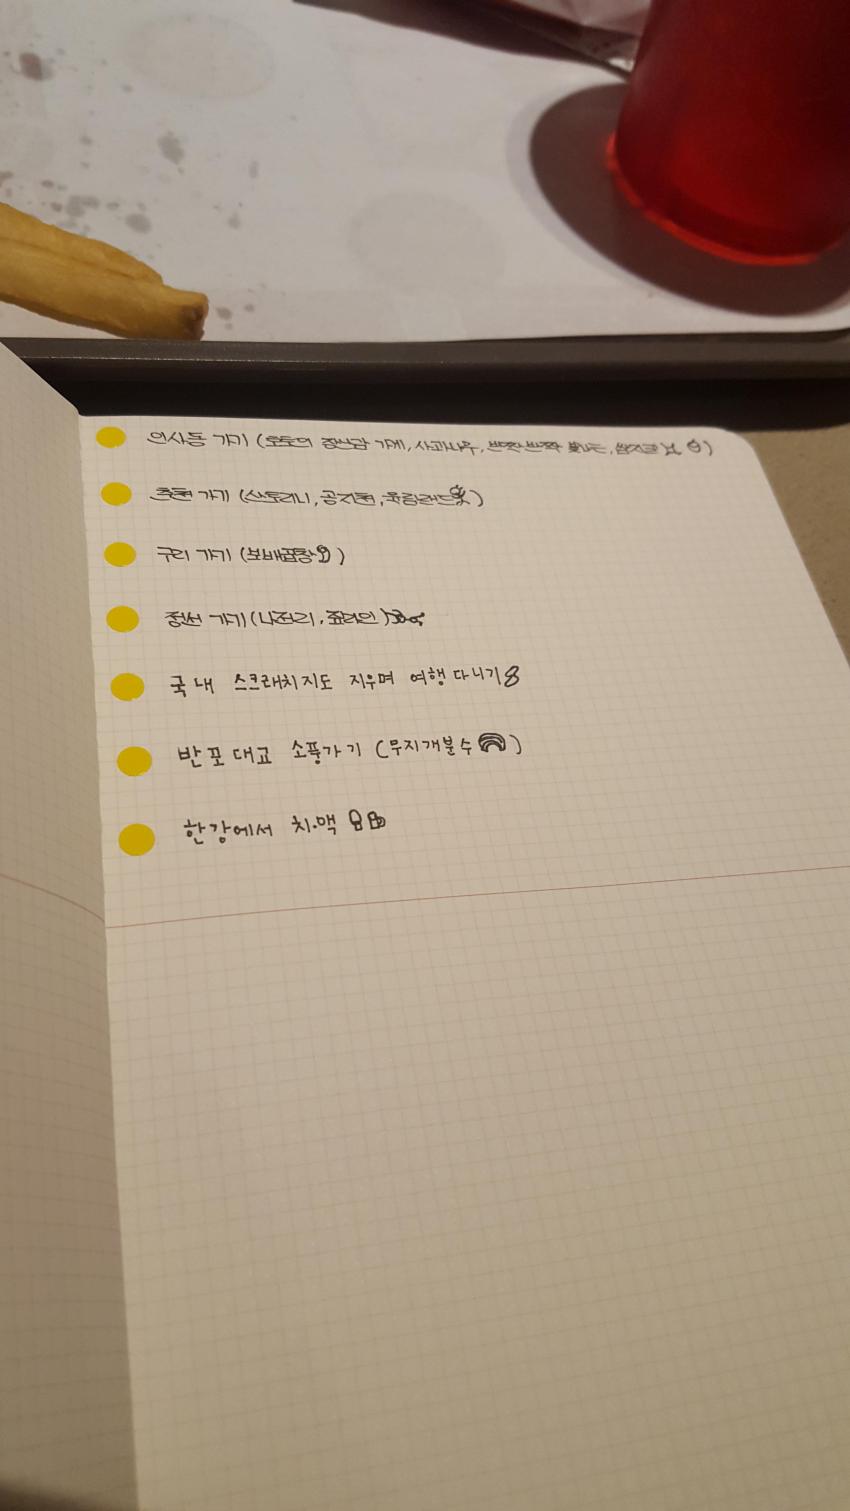 인사동 가기 (토토의 장난감 가게, 사과나무, 반짝반짝 빛나는, 쌈지길)
춘천 가기 (산토리니, 공지천, 육림랜드)
구리 가기 (보배곱창)
정선 가기 (나전리, 짚라인)
국내 스크래치지도 지우며 여행 다니기
반포대교 소풍가기 (무지개분수)
한강에서 치.맥